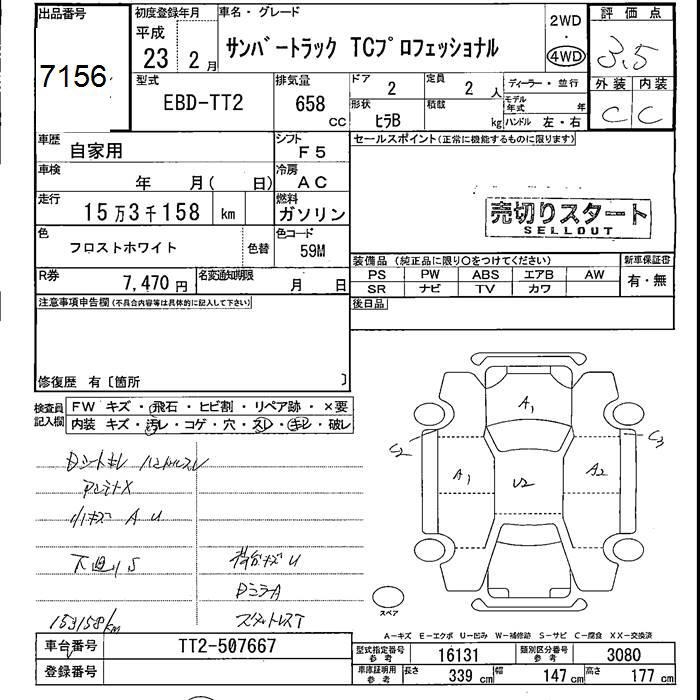 出品番号 初度登録年月 車名・グレード 2WD 評価点
平成
23 2月 サンバートラック TCプロフェッショナル ・ 4WD 3.5
7156
型式 排気量 ドア 2 定員 2人 ディーラー・並行 外装 内装
EBD-TT2 658 CC 形状 ヒラB 積載 kg モデル年式 年 C C
ハンドル 左・右
車歴 自家用 シフト F5 セールスポイント(正常に機能するものに限ります)
車検 年 月( 日) 冷房 AC
走行 15万3千158 km 燃料 ガソリン 売切りスタート
SELLOUT
色 フロストホワイト 色替 色コード 59M
装備品(純正品に限り○をつけてください) 新車保証書
R券 7,470円 名変通知期限 月 日 PS PW ABS エアB AW 有・無
SR ナビ TV カワ
注意事項申告欄(不具合内容等は具体的に記入して下さい) 後日品
修復歴 有〔箇所 〕
検査員記入欄 FW キズ・飛石・ヒビ割・リペア跡・×要
内装 キズ・汚レ・コゲ・穴・スレ・キレ・破レ
A1
C2 C3
A1 U2 A2
Dシートキレ ハンドルスレ
アンテナX
小キズ A U
下廻りS 荷台キズ U
DミラーA
153158km スタットレスT
スペア
A-キズ E-エクボ U-凹み W-補修跡 S-サビ C-腐食 XX-交換済
車台番号 TT2-507667 型式指定番号 参考 16131 類別区分番号 参考 3080
登録番号 車庫証明用 参考 長さ 339 cm 幅 147 cm 高さ 177 cm